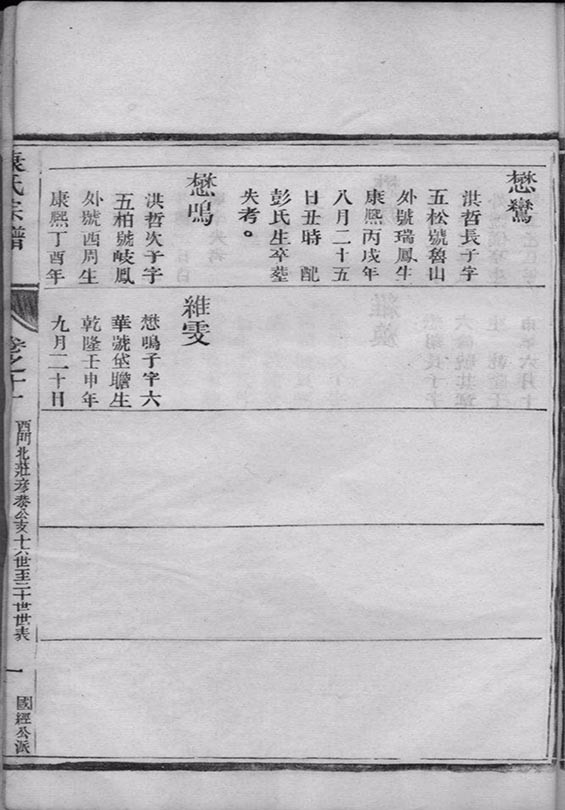 懋鸞
洪哲長子字
五松號魯山
外號瑞鳳生
康熙丙戌年
八月二十五
日丑時 配
彭氏生卒塟
失考。
懋鳴
洪哲次子字
五柏號岐鳳
外號西周生
康熙丁酉年
維雯
懋鳴子字六
華號岱瞻生
乾隆壬申年
九月二十日
袁氏宗譜
卷之十一
西門北莊彦泰公亥十六世至二十世世表
一
國經公派